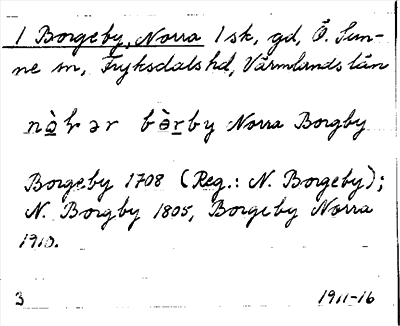 1 Borgeby, Norra 1 sk, gd, Ö. Sun-
ne sn, Fryksdals hd, Värmlands län
bərby Norra Borgby
Borgeby 1708 (Reg.: N. Borgeby);
N. Borgby 1805, Borgeby Norra
1910.
3 1911-16